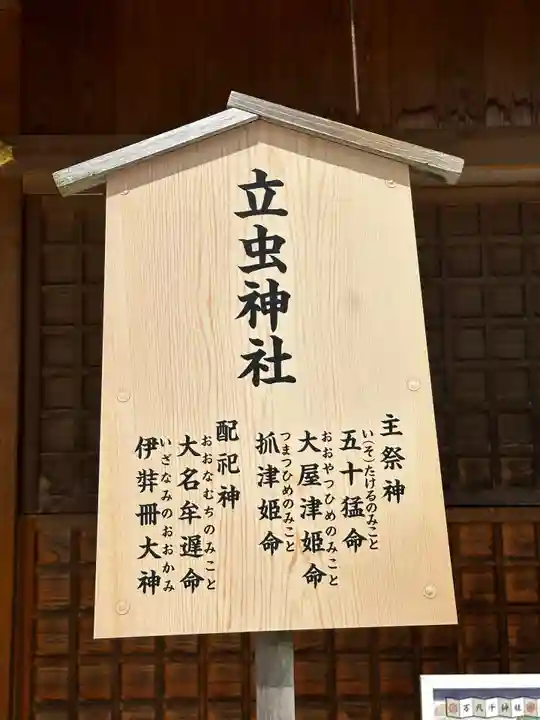 立虫神社
主祭神
五十猛命
い(そ)たけるのみこと
大屋津姫命
おおやつひめのみこと
抓津姫命
つまつひめのみこと
配祀神
大名牟遅命
おおなむちのみこと
伊弉冊大神
いざなみのおおかみ
万九千神社